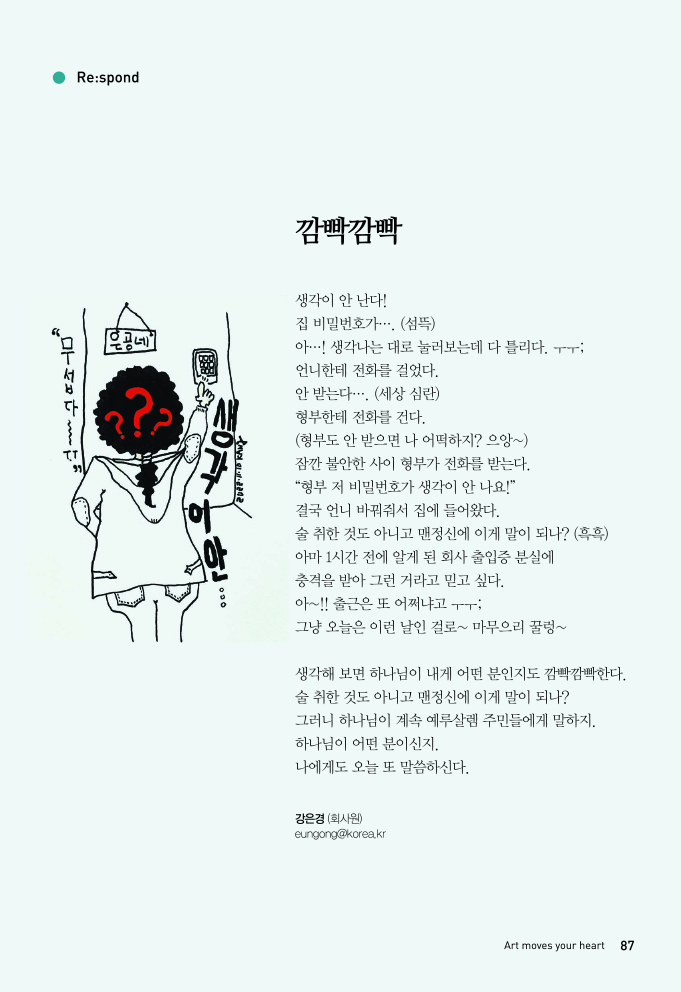 Re:spond
깜빡깜빡
생각이 안 난다!
집 비밀번호가…. (섬뜩)
아…! 생각나는 대로 눌러보는데 다 틀리다. ㅜㅜ;
언니한테 전화를 걸었다.
안 받는다…. (세상 심란)
형부한테 전화를 건다.
(형부도 안 받으면 나 어떡하지? 으앙~)
잠깐 불안한 사이 형부가 전화를 받는다.
“형부 저 비밀번호가 생각이 안 나요!”
결국 언니 바꿔줘서 집에 들어왔다.
술 취한 것도 아니고 맨정신에 이게 말이 되나? (흑흑)
아마 1시간 전에 알게 된 회사 출입증 분실에
충격을 받아 그런 거라고 믿고 싶다.
아~!! 출근은 또 어쩌냐고 ㅜㅜ;
그냥 오늘은 이런 날인 걸로~ 마무으리 꿀렁~
생각해 보면 하나님이 내게 어떤 분인지도 깜빡깜빡한다.
술 취한 것도 아니고 맨정신에 이게 말이 되나?
그러니 하나님이 계속 예루살렘 주민들에게 말하지.
하나님이 어떤 분이신지.
나에게도 오늘 또 말씀하신다.
강은경 (회사원)
eungong@korea.kr
은공네
“무섭다~~~
???
생각이안...
Art moves your heart 87